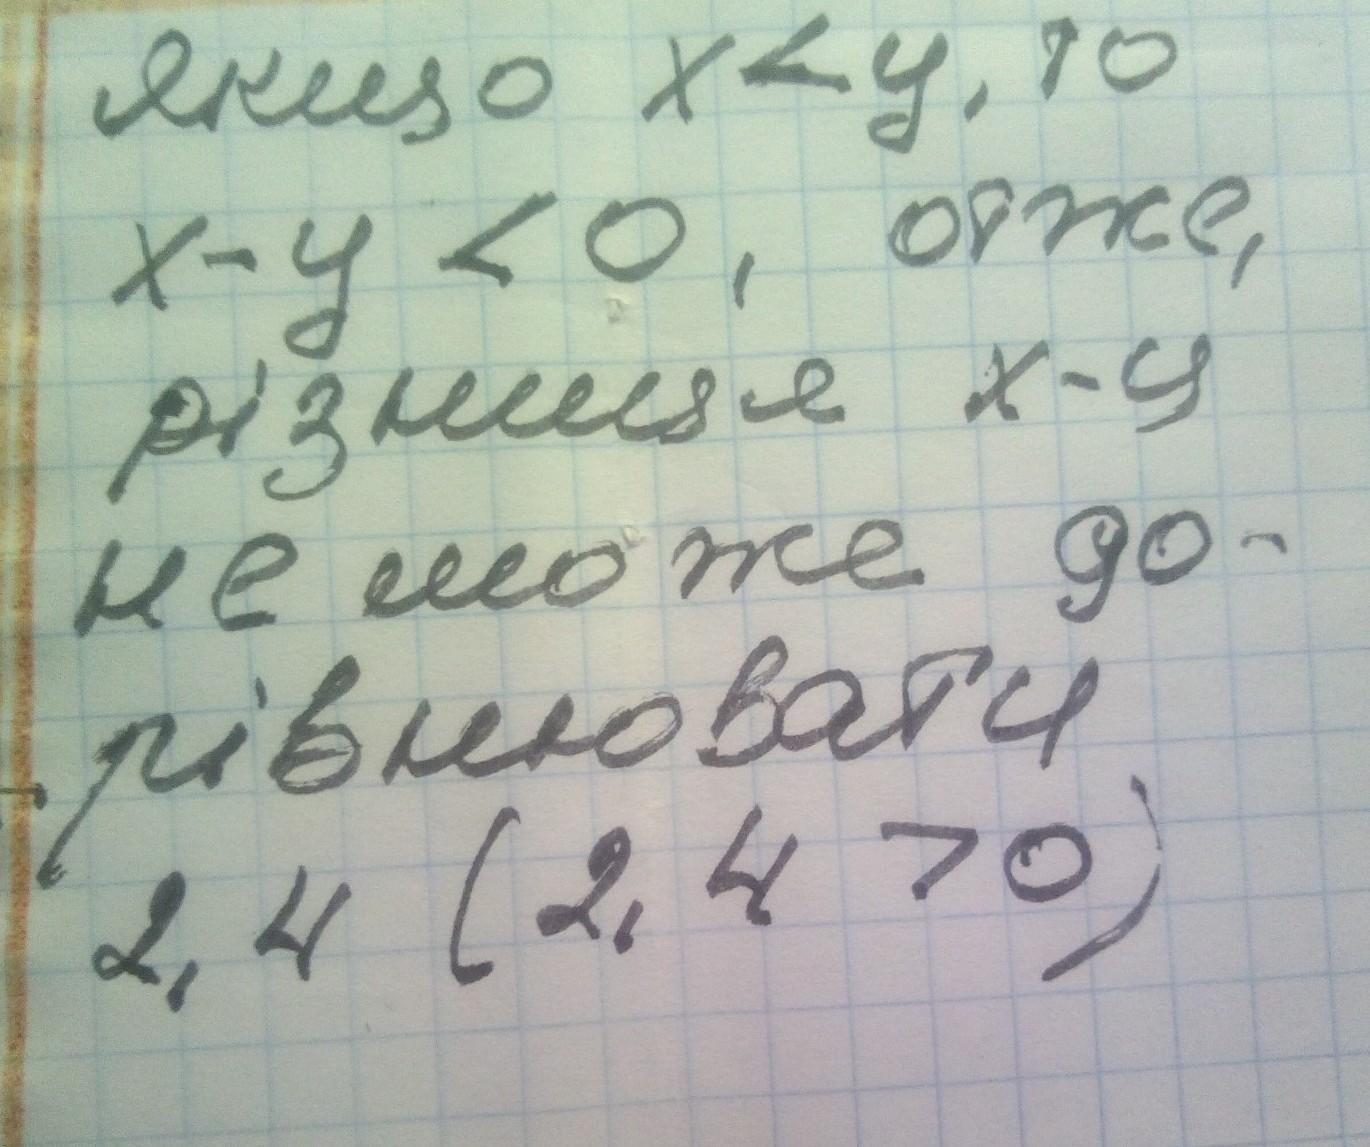 якщо x < y, то
x - y < 0, отже,
різниця x - y
не може до-
рівнювати
2,4 (2,4 > 0)